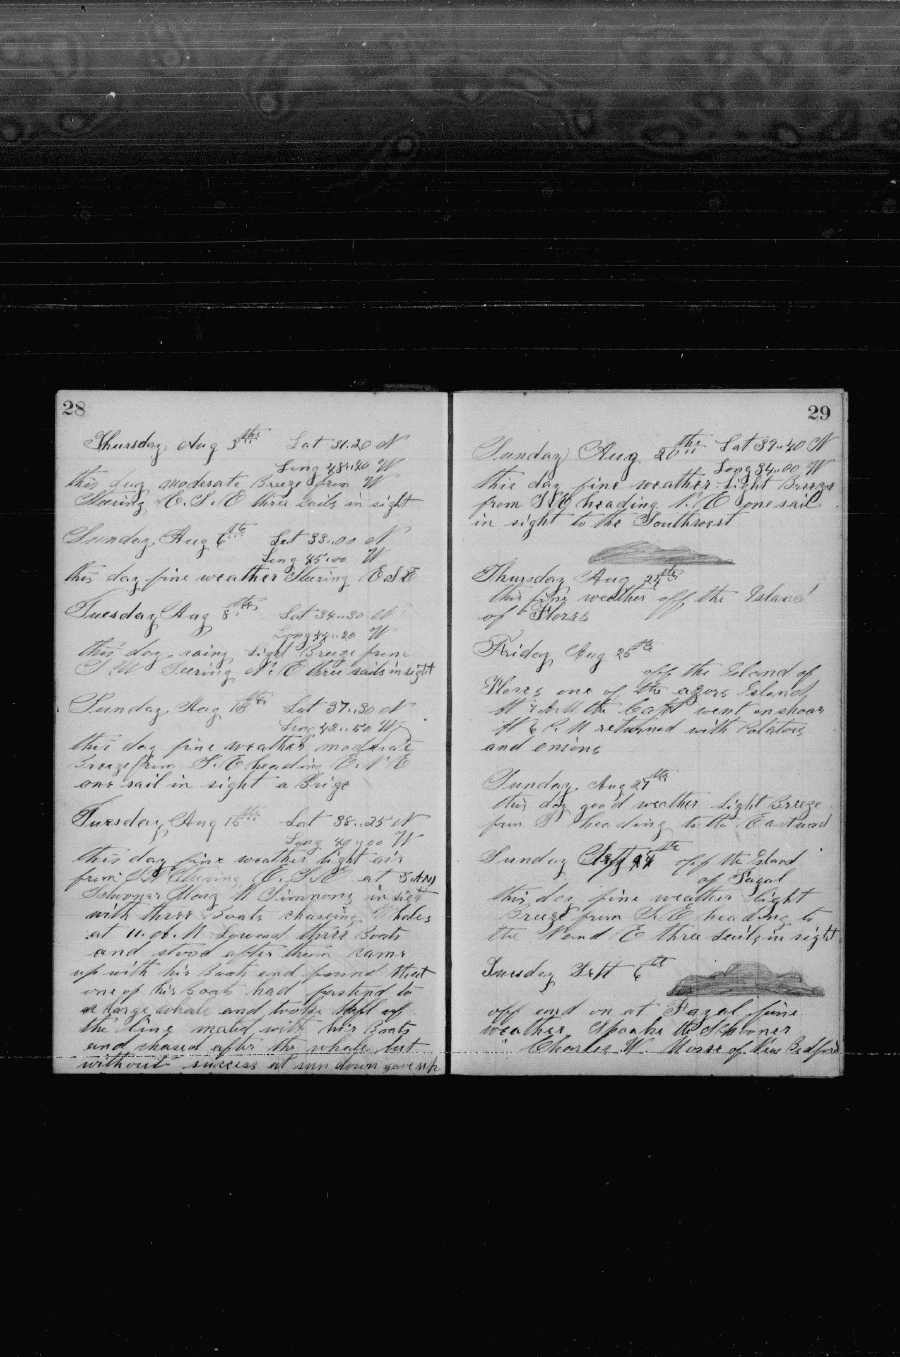 28
Thursday Aug 3th Lat 31..20 N
Long 48..20 W
this day moderate Breeze from W
Stearing E. S. E three sails in sight
Sunday Aug 6th Lat 33..00 N
Long 45..00 W
this day fine weather Stearing E S E
Tuesday Aug 8th Lat 34..30 N
Long 44..20 W
this day raing light Breeze from
S W Steering N. E three sails in sight
Sunday Aug 13th Lat 37..30 N
Long 42..50 W
this day fine weather moderate
Breeze from S. E heading E. N E
one sail in sight a Brige
Tuesday Aug 15th Lat 38..25 N
Long 40..00 W
this day fine weather light air
from S W Stearing E. S. E at 5 AM
Schooner Mary W Simmons in sight
with three Boats chaseing Wholes
at 11. A. M Lowerd three Boats
and stood after them came
up with his Boats and found that
one of his Boats had fastend to
a large whale and tooke of
the line mated with his Boats
and chased after the whale but
without success at sun down gave up
29
Sunday Aug 20th Lat 39..40 N
Long 34..00 W
this day fine weather light Breeze
from heading N. E one sail
in sight to the Southwest
Thursday Aug 24th
this fine weather off the Island
of Flores
Friday Aug 25th
off the Island of
Flores one of the azors Island,
At 7 A. M the Capt went on shoar
At 6 P. M returned with Potatoes
and onions
Sunday Aug 27th
this day good weather light Breeze
frm S heading to the Eastward
Sunday off the Island
of Fayal
this day fine weather light
Breeze from S. E heading to
the N and E three sails in sight
Tuesday Sept 6th
off and on at Fayal fine
weather Spoake the Schooner
Charles W. Morse of New Bedford